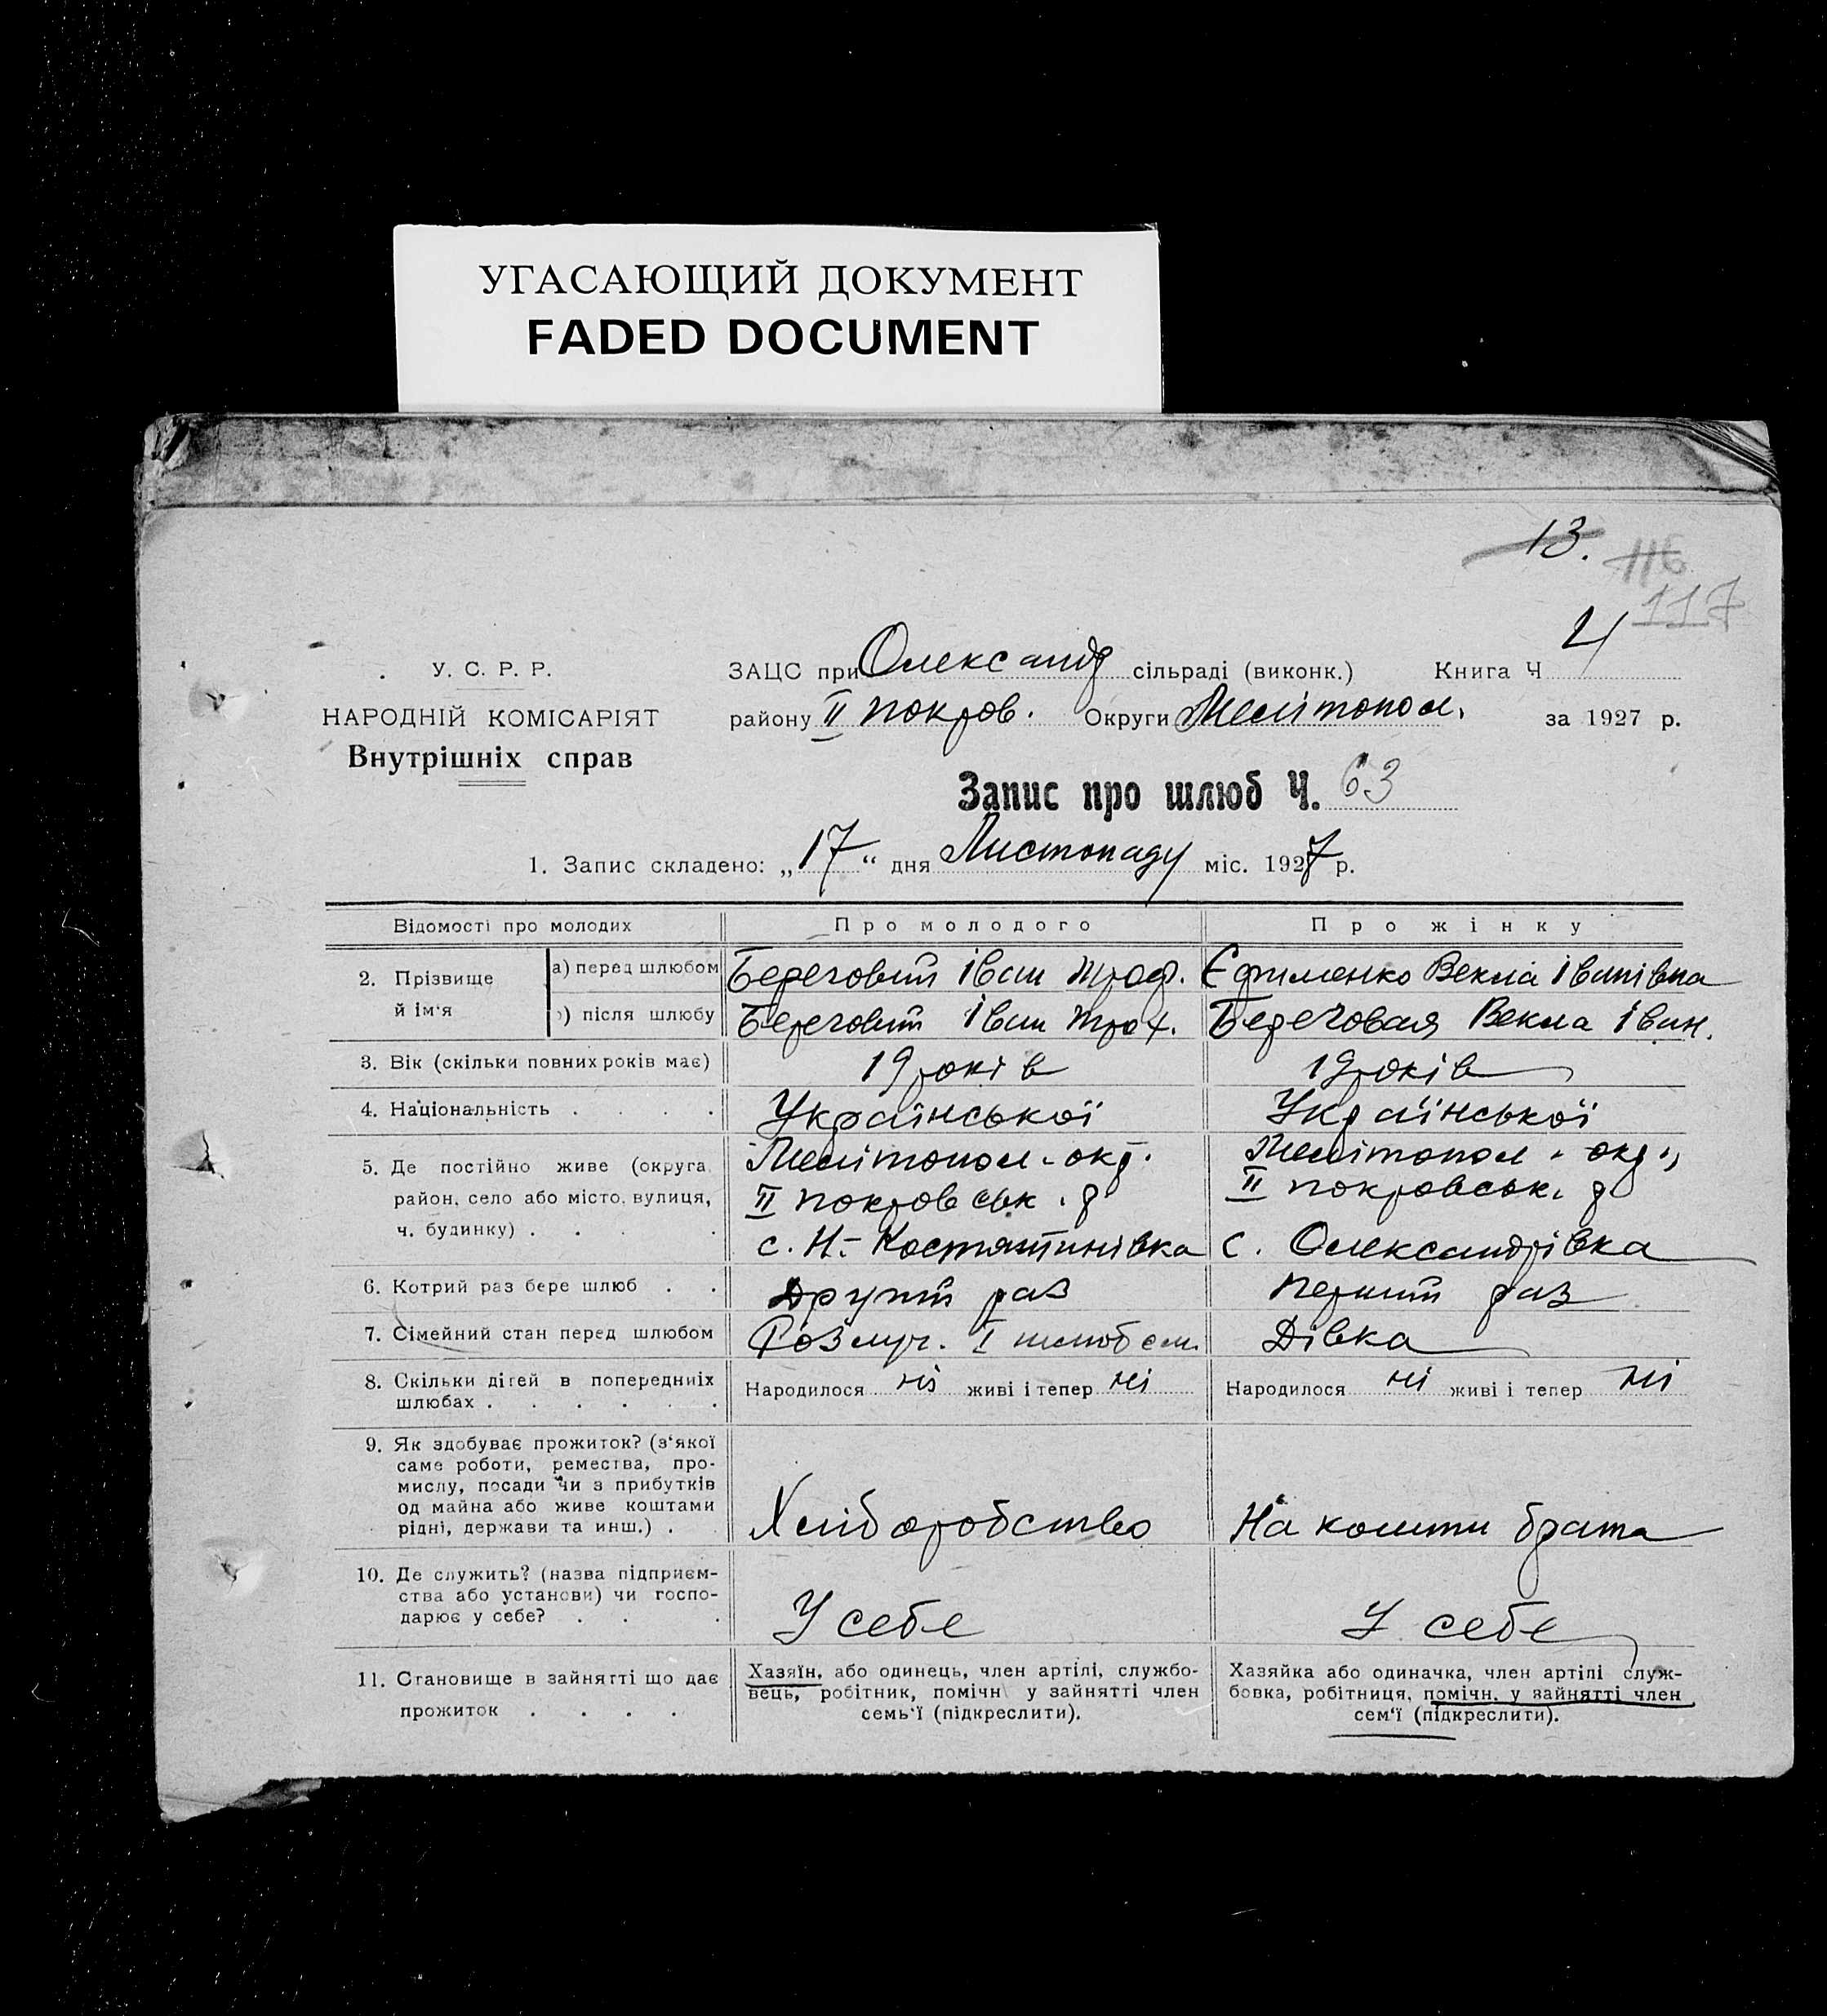 УГАСАЮЩИЙ ДОКУМЕНТ
FADED DOCUMENT
13.
116
117
У. С. Р. Р.
НАРОДНІЙ КОМІСАРІЯТ
Внутрішніх справ
ЗАЦС при Олександ сільраді (виконк.) Книга Ч 4
району ІІ покров. Округи Мелітопол. за 1927 р.
Запис про шлюб Ч. 63
1. Запис складено: „17“ дня Листопаду міс. 1927 р.
Відомості про молодих Про молодого Про жінку
2. Прізвище й ім'я
а) перед шлюбом Береговий Іван Троф. Єфименко Векла Іванівна
) після шлюбу Береговий Іван Трох. Береговая Векла Іван.
3. Вік (скільки повних років має) 19 років 19 років
4. Національність . . . . Української Української
5. Де постійно живе (округа, район, село або місто, вулиця, ч. будинку) . . . .
Мелітопол - окр.
ІІ покровськ. р
с. Н.- Костянтинівка
Мелітопол - окр.,
ІІ покровськ. р
с. Олександрівка
6. Котрий раз бере шлюб . . Другий раз Перший раз
7. Сімейний стан перед шлюбом Розлуч. І шлюбом Дівка
8. Скільки дітей в попередніх шлюбах . . . . . .
Народилося ні живі і тепер ні
Народилося ні живі і тепер ні
9. Як здобуває прожиток? (з'якої
саме роботи, ремества, про-
мислу, посади чи з прибутків
од майна або живе коштами
рідні, держави та инш.) .
Хліборобство
На кошти брата
10. Де служить? (назва підприєм-
ства або установи) чи госпо-
дарює у себе? . . .
У себе
У себе
11. Становище в зайнятті що дає
прожиток . . . .
Хазяїн, або одинець, член артілі, службо-
вець, робітник, помічн у зайнятті член
семь'ї (підкреслити).
Хазяйка або одиначка, член артілі служ-
бовка, робітниця, помічн. у зайнятті член
сем'ї (підкреслити).